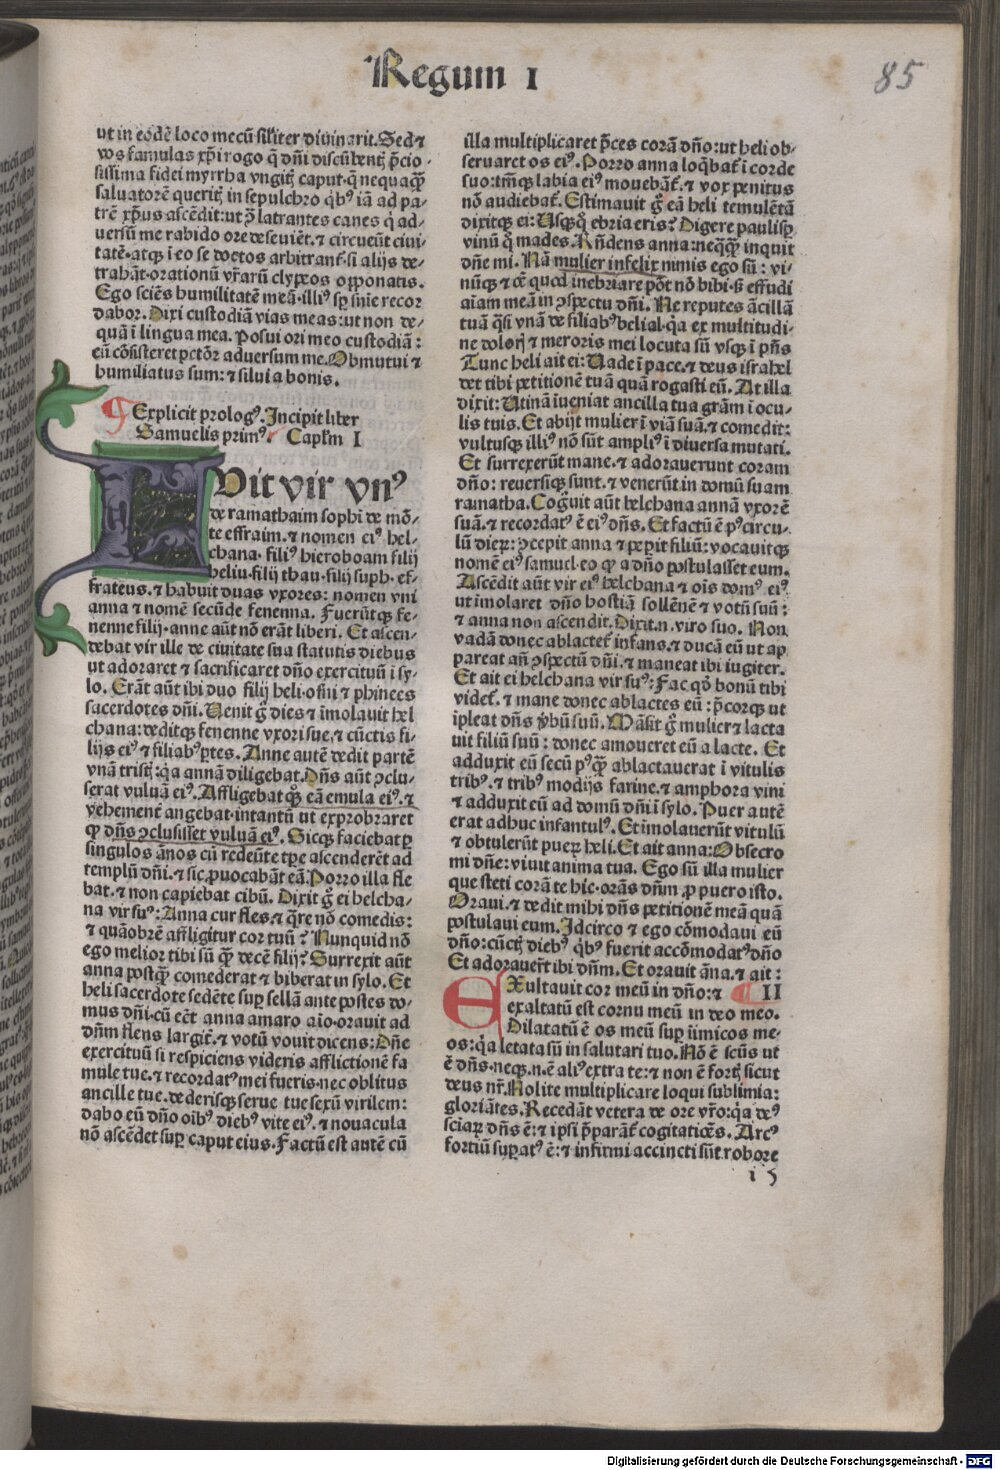 Regum I
85
ut in eodē loco mecū siliter diuinarit. Sed ⁊
vos famulas xp̄i rogo q̄ dn̄i discūbentꝭ p̄cio-
sissima fidei myrrha vngitꝭ caput · q̄ nequaq̄ꝫ
saluatorē queritꝭ in sepulchro qͥbꝰ iā ad pa-
trē xp̄us ascēdit: ut ↄ̄ latrantes canes q̄ ad-
uersū me rabido ore deseuiēt. ⁊ circueūt ciui-
tatē · atqꝫ i eo se doctos arbitrant̄ · si alijs de-
trahāt · orationū vr̄arū clypeos opponatis.
Ego sciēs humilitatē meā · illiꝰ sꝑ sn̄ie recor
dabor. Dixi custodiā vias meas: ut non de-
quā i lingua mea. Posui ori meo custodiā:
cū cōsisteret pctōr aduersum me. Obmutui ⁊
humiliatus sum: ⁊ silui a bonis.
¶ Explicit prologꝰ. Incipit liber
Samuelis primꝰ. Captm̄ I
FVit vir vnꝰ
de ramathaim sophi de mō-
te effraim. ⁊ nomen eiꝰ hel-
chana · filiꝰ hieroboam filij
heliu · filij thau · filij suph · ef-
frateus. ⁊ habuit duas vxores: nomen vni
anna ⁊ nomē secūde fenenna. Fuerūtqꝫ fe-
nenne filij · anne aūt nō erāt liberi. Et ascen-
debat vir ille de ciuitate sua statutis diebus
ut adoraret ⁊ sacrificaret dn̄o exercituū i sy-
lo. Erāt aūt ibi duo filij heli · ofni ⁊ phinees
sacerdotes dn̄i. Uenit ḡ dies ⁊ īmolauit hel
chana: deditqꝫ fenenne vxori sue, ⁊ cūctis fi-
lijs eiꝰ ⁊ filiabꝰ ꝑtes. Anne autē dedit partē
vnā tristꝭ: qꝛ annā diligebat. Dn̄s aūt ↄclu-
serat vuluā eiꝰ. Affligebat qꝫ eā emula eiꝰ. ⁊
vehement̄ angebat · intantū ut exprobraret
ꝙ dn̄s ↄclusisset vuluā eiꝰ. Sicqꝫ faciebat ꝑ
singulos ānos cū redeūte tꝑe ascenderēt ad
templū dn̄i. ⁊ sic ꝓuocabāt eā. Porro illa fle
bat. ⁊ non capiebat cibū. Dixit ḡ ei helcha-
na vir suꝰ: Anna cur fles. ⁊ q̄re nō comedis:
⁊ quāobrē affligitur cor tuū? Nunquid nō
ego melior tibi sū q̄ꝫ decē filij? Surrexit aūt
anna postq̄ꝫ comederat ⁊ biberat in sylo. Et
heli sacerdote sedēte suꝑ sellā ante postes do-
mus dn̄i: cū eēt anna amaro aīo · orauit ad
dn̄m flens largit̄. ⁊ votū vouit dicens: Dn̄e
exercituū si respiciens videris afflictionē fa
mule tue. ⁊ recordatꝰ mei fueris · nec oblitus
ancille tue. dederisqꝫ serue tue sexū virilem:
dabo eū dn̄o oībꝰ diebꝰ vite eiꝰ. ⁊ nouacula
nō ascēdet suꝑ caput eius. Factū est autē cū
illa multiplicaret p̄ces corā dn̄o: ut heli ob-
seruaret os eiꝰ. Porro anna loq̄bat̄ ī corde
suo: tm̄qꝫ labia eiꝰ mouebāt̄. ⁊ vox penitus
nō audiebat̄. Estimauit ḡ eā heli temulētā
dixitqꝫ ei: Usqꝫ qͦ ebria eris? Digere paulisꝑ
vinū qͦ mades. Rn̄dens anna: neq̄qꝫ inquit
dn̄e mi. Nā mulier infelix nimis ego sū: vi-
nūqꝫ ⁊ oē quod inebriare pōt nō bibi · sꝫ effudi
aīam meā in ↄspectu dn̄i. Ne reputes ācillā
tuā q̄si vnā de filiabꝰ belial · qꝛ ex multitudi-
ne dolorꝭ ⁊ meroris mei locuta sū vsqꝫ i p̄ns
Tunc heli ait ei: Uade i pace. ⁊ deus israhel
det tibi petitionē tuā quā rogasti eū. At illa
dixit: Utinā iueniat ancilla tua gr̄am i ocu-
lis tuis. Et abijt mulier i viā suā. ⁊ comedit:
vultusqꝫ illiꝰ nō sūt ampliꝰ i diuersa mutati.
Et surrexerūt mane. ⁊ adorauerunt coram
dn̄o: reuersiqꝫ sunt. ⁊ venerūt in domū suam
ramatha. Cogͦuit aūt helchana annā vxorē
suā. ⁊ recordatꝰ ē eiꝰ dn̄s. Et factū ē pꝰ circu-
lū dieꝝ: ↄcepit anna ⁊ peꝑit filiū: vocauitqꝫ
nomē eiꝰ samuel · eo ꝙ a dn̄o postulasset eum.
Ascēdit aūt vir eiꝰ helchana ⁊ oīs domꝰ eiꝰ
ut imolaret dn̄o hostiā sollēnē ⁊ votū suū:
⁊ anna non ascendit. Dixit. n. viro suo. Non
vadā donec ablactet̄ infans. ⁊ ducā eū ut ap
pareat an̄ ↄspectū dn̄i. ⁊ maneat ibi iugiter.
Et ait ei helchana vir suꝰ: Fac qͦ bonū tibi
videt̄. ⁊ mane donec ablactes eū: p̄corqꝫ ut
ipleat dn̄s v̄bū suū. Māsit ḡ mulier ⁊ lacta
uit filiū suū: donec amoueret eū a lacte. Et
adduxit eū secū pꝰq̄ꝫ ablactauerat i vitulis
tribꝰ. ⁊ tribꝰ modijs farine. ⁊ amphora vini
⁊ adduxit eū ad domū dn̄i i sylo. Puer autē
erat adhuc infantulꝰ. Et imolauerūt vitulū
⁊ obtulerūt pueꝝ heli. Et ait anna: Obsecro
mi dn̄e: viuit anima tua. Ego sū illa mulier
que steti corā te hic · orās dn̄m ꝓ puero isto.
Oraui. ⁊ dedit mihi dn̄s petitionē meā quā
postulaui eum. Idcirco ⁊ ego cōmodaui eū
dn̄o: cūctꝭ diebꝰ qͥbꝰ fuerit accōmodatꝰ dn̄o
Et adorauer̄t ibi dn̄m. Et orauit āna. ⁊ ait:
EXultauit cor meū in dn̄o: ⁊ ¶ II
exaltatū est cornu meū in deo meo.
Dilatatū ē os meū suꝑ iimicos me-
os: qꝛ letata sū in salutari tuo. Nō ē scūs ut
ē dn̄s. neqꝫ. n. ē aliꝰ extra te: ⁊ non ē fortꝭ sicut
deus nr̄. Nolite multiplicare loqui sublimia:
gloriātes. Recedāt vetera de ore vr̄o: qꝛ deꝰ
sciaꝝ dn̄s ē: ⁊ ipsi p̄parāt̄ cogitatiōes. Arcꝰ
fortiū suꝑatꝰ ē: ⁊ infirmi accincti sūt robore
i 5
Digitalisierung gefördert durch die Deutsche Forschungsgemeinschaft - DFG